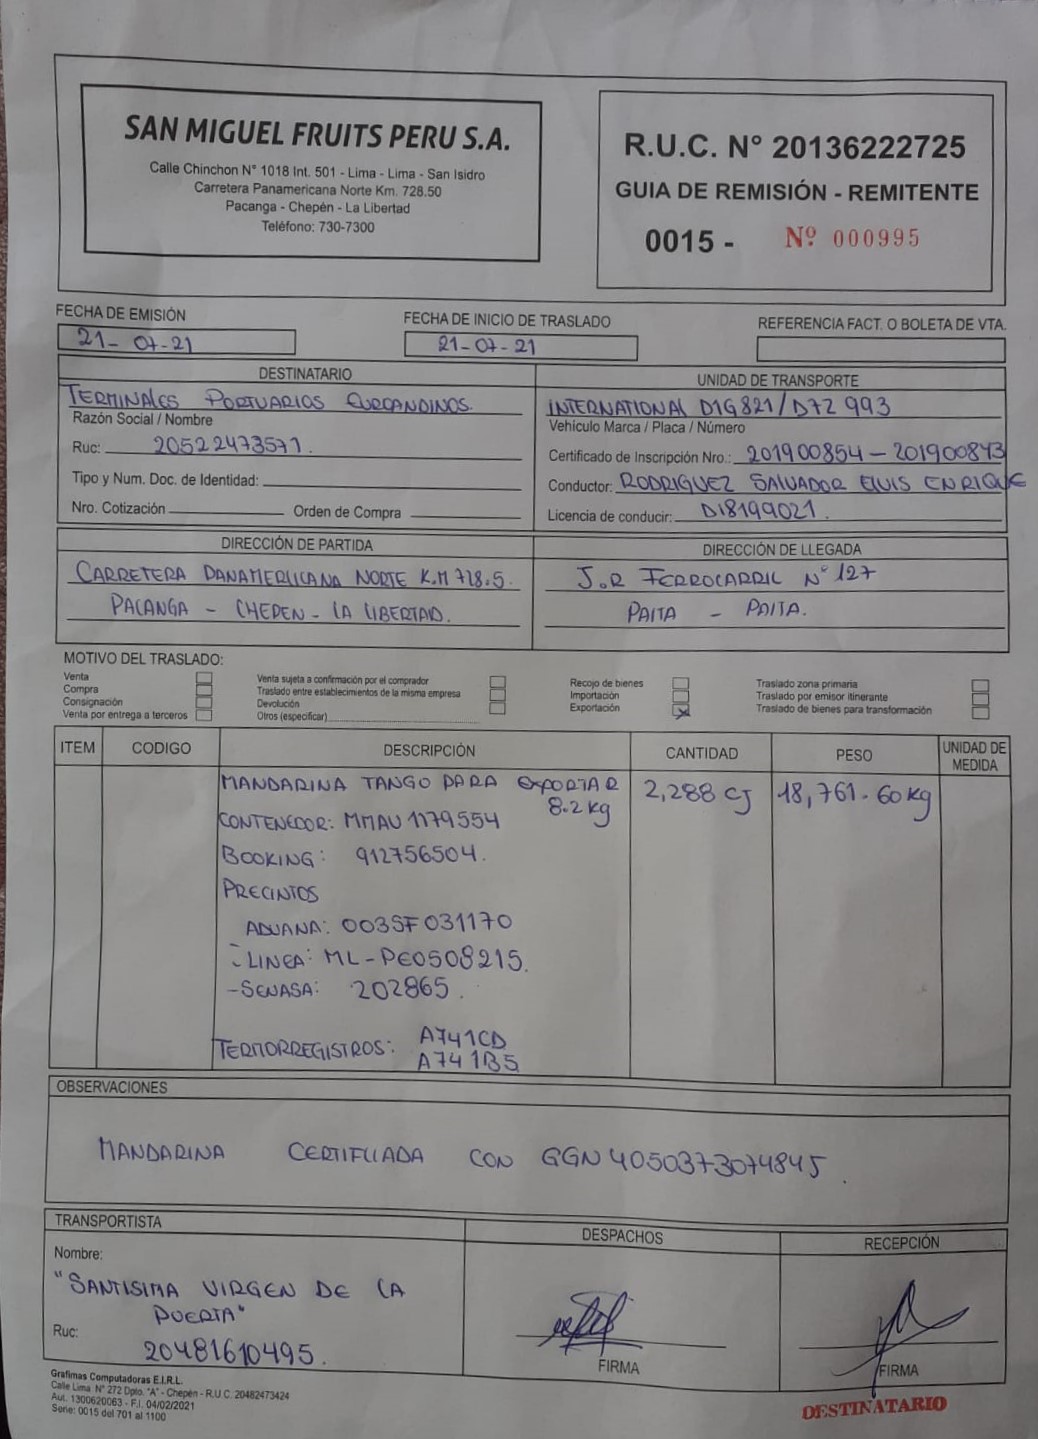 SAN MIGUEL FRUITS PERU S.A.
Calle Chinchon N° 1018 Int. 501 - Lima - Lima - San Isidro
Carretera Panamericana Norte Km. 728.50
Pacanga - Chepén - La Libertad
Teléfono: 730-7300
R.U.C. N° 20136222725
GUIA DE REMISIÓN - REMITENTE
0015 - Nº 000995
FECHA DE EMISIÓN
21-07-21
FECHA DE INICIO DE TRASLADO
21-07-21
REFERENCIA FACT. O BOLETA DE VTA.
DESTINATARIO
TERMINALES PORTUARIOS EUROANDINOS.
Razón Social / Nombre
Ruc: 20522473571.
Tipo y Num. Doc. de Identidad:
Nro. Cotización Orden de Compra
UNIDAD DE TRANSPORTE
INTERNATIONAL D1G821/D7Z 993
Vehículo Marca / Placa / Número
Certificado de Inscripción Nro.: 201900854-201900843
Conductor: RODRIGUEZ SALVADOR ELVIS ENRIQUE
Licencia de conducir: D18199021.
DIRECCIÓN DE PARTIDA
CARRETERA PANAMERICANA NORTE K.M 728.5.
PACANGA - CHEPEN - LA LIBERTAD.
DIRECCIÓN DE LLEGADA
J.R FERROCARRIL N° 127
PAITA - PAITA.
MOTIVO DEL TRASLADO:
Venta
Compra
Consignación
Venta por entrega a terceros
Venta sujeta a confirmación por el comprador
Traslado entre establecimientos de la misma empresa
Devolución
Otros (especificar)
Recojo de bienes
Importación
Exportación X
Traslado zona primaria
Traslado por emisor itinerante
Traslado de bienes para transformación
ITEM CODIGO DESCRIPCIÓN CANTIDAD PESO UNIDAD DE MEDIDA
MANDARINA TANGO PARA EXPORTAR 2,288 CJ 18,761.60 kg
8.2 kg
CONTENEDOR: MMAU 1179554
BOOKING: 912756504.
PRECINTOS
ADUANA: 003SF031170
- LINEA: ML-PE0508215.
- SENASA: 202865.
TERMORREGISTROS: A741CD
A741B5
OBSERVACIONES
MANDARINA CERTIFICADA CON GGN 4050373074845.
TRANSPORTISTA
Nombre:
"SANTISIMA VIRGEN DE LA
PUERTA"
Ruc: 20481610495.
DESPACHOS
FIRMA
RECEPCIÓN
FIRMA
Grafimas Computadoras E.I.R.L.
Calle Lima N° 272 Dpto. "A" - Chepén - R.U.C. 20482473424
Aut. 1300620063 - F.I. 04/02/2021
Serie: 0015 del 701 al 1100
DESTINATARIO